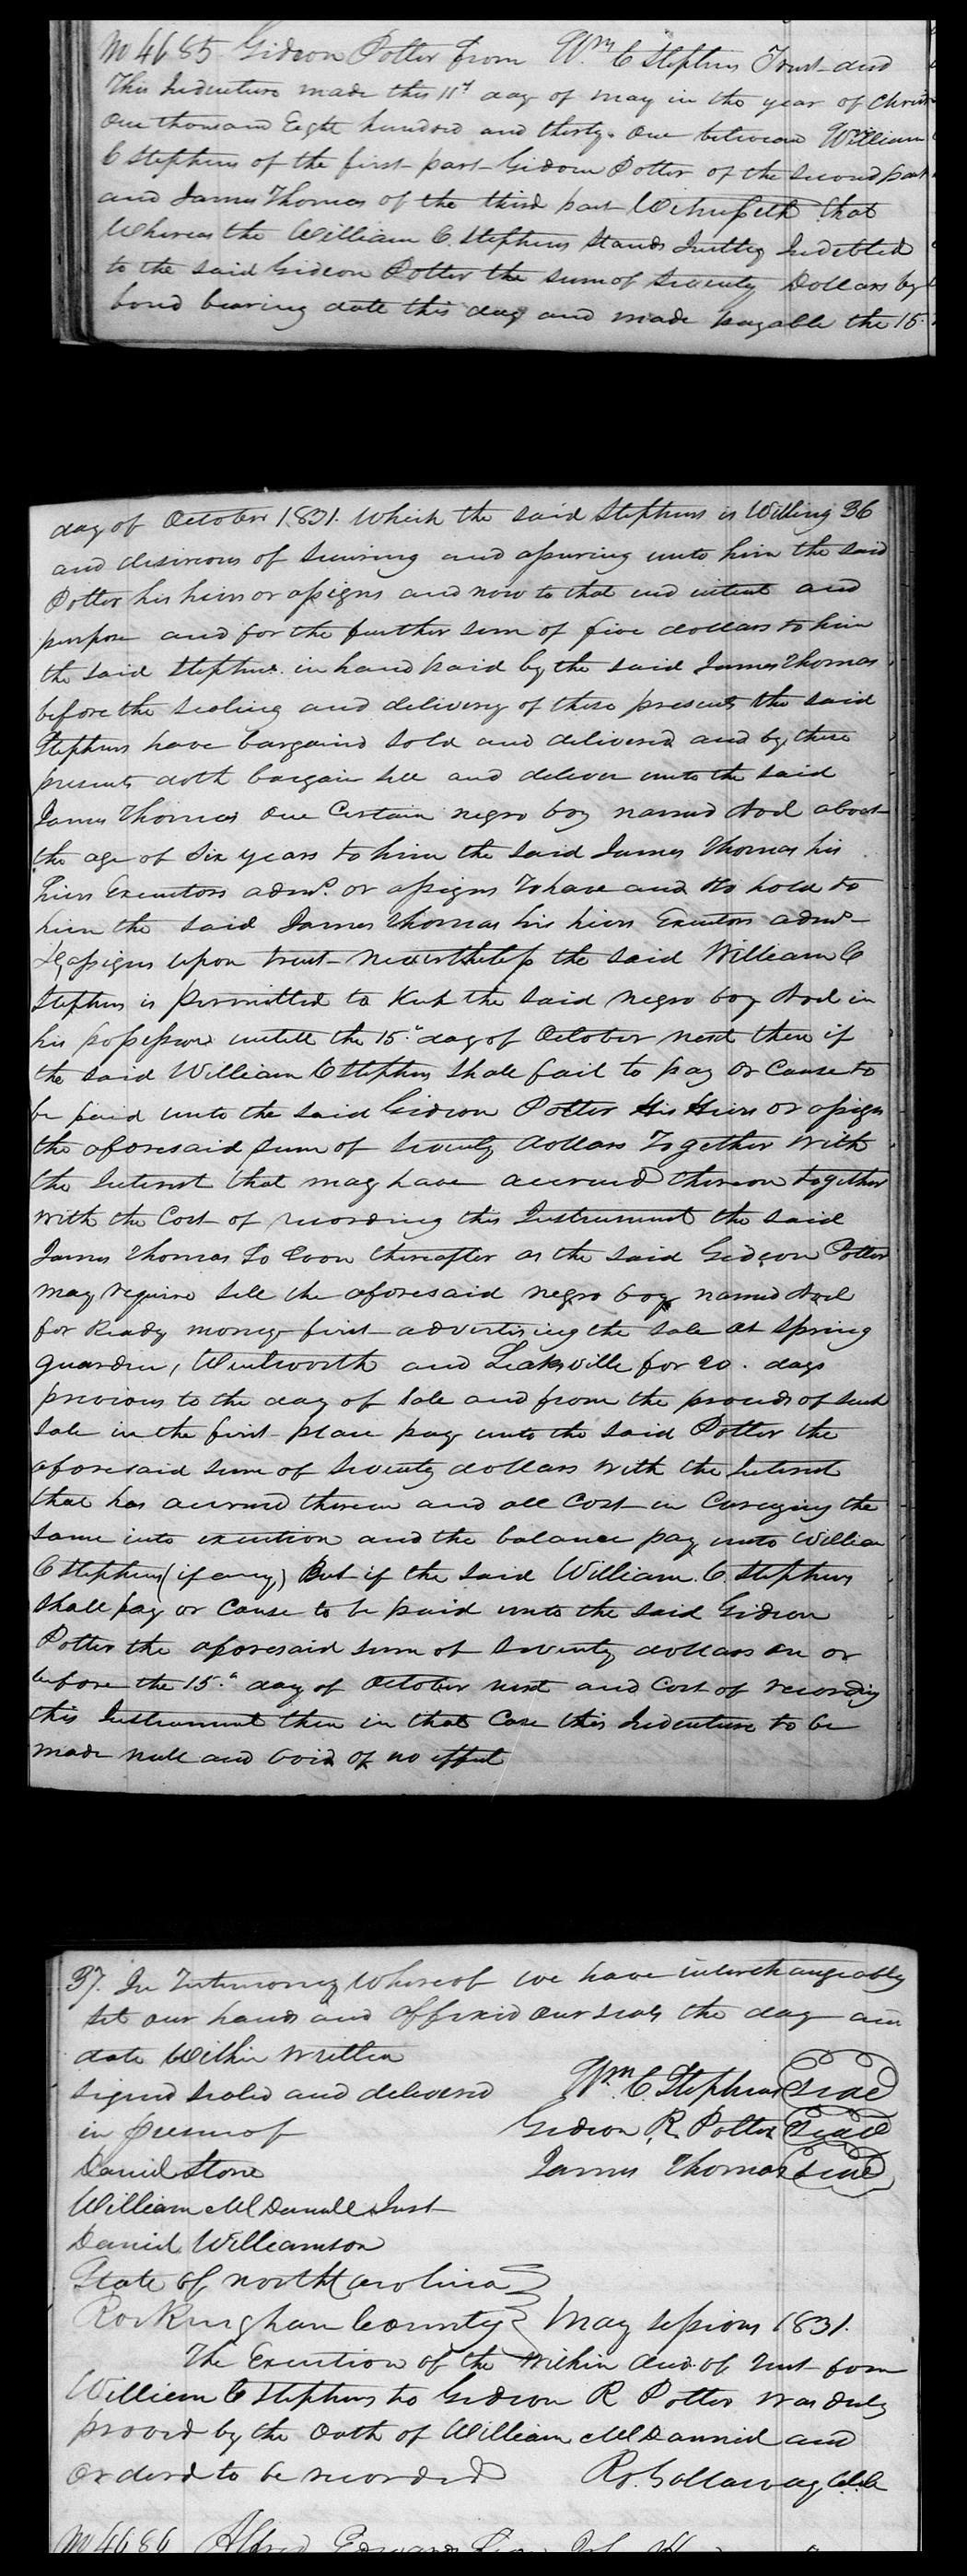 No 4685 Gideon Potter from Wm C Stephens Trust deed
This Indenture made this 11th day of may in the year of Christ
One thousand Eight hundred and thirty One between William
C Stephens of the first part Gideon Potter of the second part
and James Thomas of the third part Witnesseth that
Whereas the William C. Stephens Stands Justley Indebted
to the said Gideon Potter the sum of Seventy Dollars by
bond bearing date this day and made payable the 15
day of October 1831. Which the said Stephens is Willing 36
and desireous of securing and assuring unto him the said
Potter his heirs or assigns and now to that end intent and
purpose and for the further sum of five dollars to him
the said Stephens in hand paid by the said James Thomas
before the sealing and delivery of these presents the said
Stephens have bargaind sold and delivered and by these
presents doth bargain sell and deliver unto the said
James Thomas One Certain negro boy named about
the age of Six years to him the said James Thomas his
heirs Executors adms. or assigns To have and to hold to
him the said James Thomas his heirs Executors adms
& assigns upon trust nevertheless the said William C
Stephens is permitted to Keep the said negro boy in
his possession untill the 15th day of October next then if
the said William C Stephens Shall fail to pay or Cause to
be paid unto the said Gideon Potter His Heirs or assigns
the aforesaid sum of Seventy dollars Together With
the Interest that may have accrued thereon together
With the Cost of recording this Instrument the said
James Thomas So Soon thereafter as the said Gideon Potter
may require Sell the aforesaid negro boy named
for Ready money first advertising the sale at Spring
guarden, Wentworth and Leaksville for 20. days
previous to the day of Sale and from the proceeds of such
Sale in the first place pay unto the said Potter the
aforesaid sum of Seventy dollars With the Interest
that has accrued thereon and all Cost in Carrying the
same into execution and the balance pay unto William
C Stephens (if any) But if the said William. C. Stephens
Shall pay or Cause to be paid unto the said Gideon
Potter the aforesaid sum of Seventy dollars on or
before the 15th day of October next and Cost of recording
this Instrument then in that Case this Indenture to be
made null and void of no effect
37. In Testimoney Whereof we have interchangeably
set our hands and affixed our seals the day and
date Within written
Signed sealed and delivered Wm C Stephens Seal
in presence of Gideon R. Potter Seal
Daniel Stone James Thomas Seal
William McDaniell Just
Daniel Williamson
State of North Carolina
Rockingham County May sessions 1831.
The Execution of the Within deed of trust from
William C Stephens to Gideon R Potter was duly
proved by the Oath of William McDanniel and
Ordered to be recorded Ro. Gallaway C.C.
No 4686 Alfred